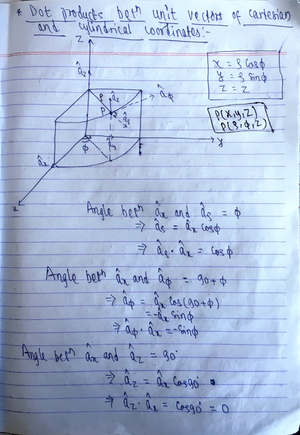 * Dot products betn unit vectors of cartesian
and cylindrical coordinates:-
x = ρ cosφ
y = ρ sinφ
z = z
P(x,y,z)
P(ρ,φ,z)
z
âz
ρ
âz
P
âρ
âφ
âx
φ
y
x
Angle betn âx and âρ = φ
⇒ âρ = âx cosφ
⇒ âρ · âx = cosφ
Angle betn âx and âφ = 90+φ
⇒ âφ = âx cos(90+φ)
= -âx sinφ
⇒ âφ · âx = -sinφ
Angle betn âx and âz = 90°
⇒ âz = âx cos90°
⇒ âz · âx = cos90° = 0